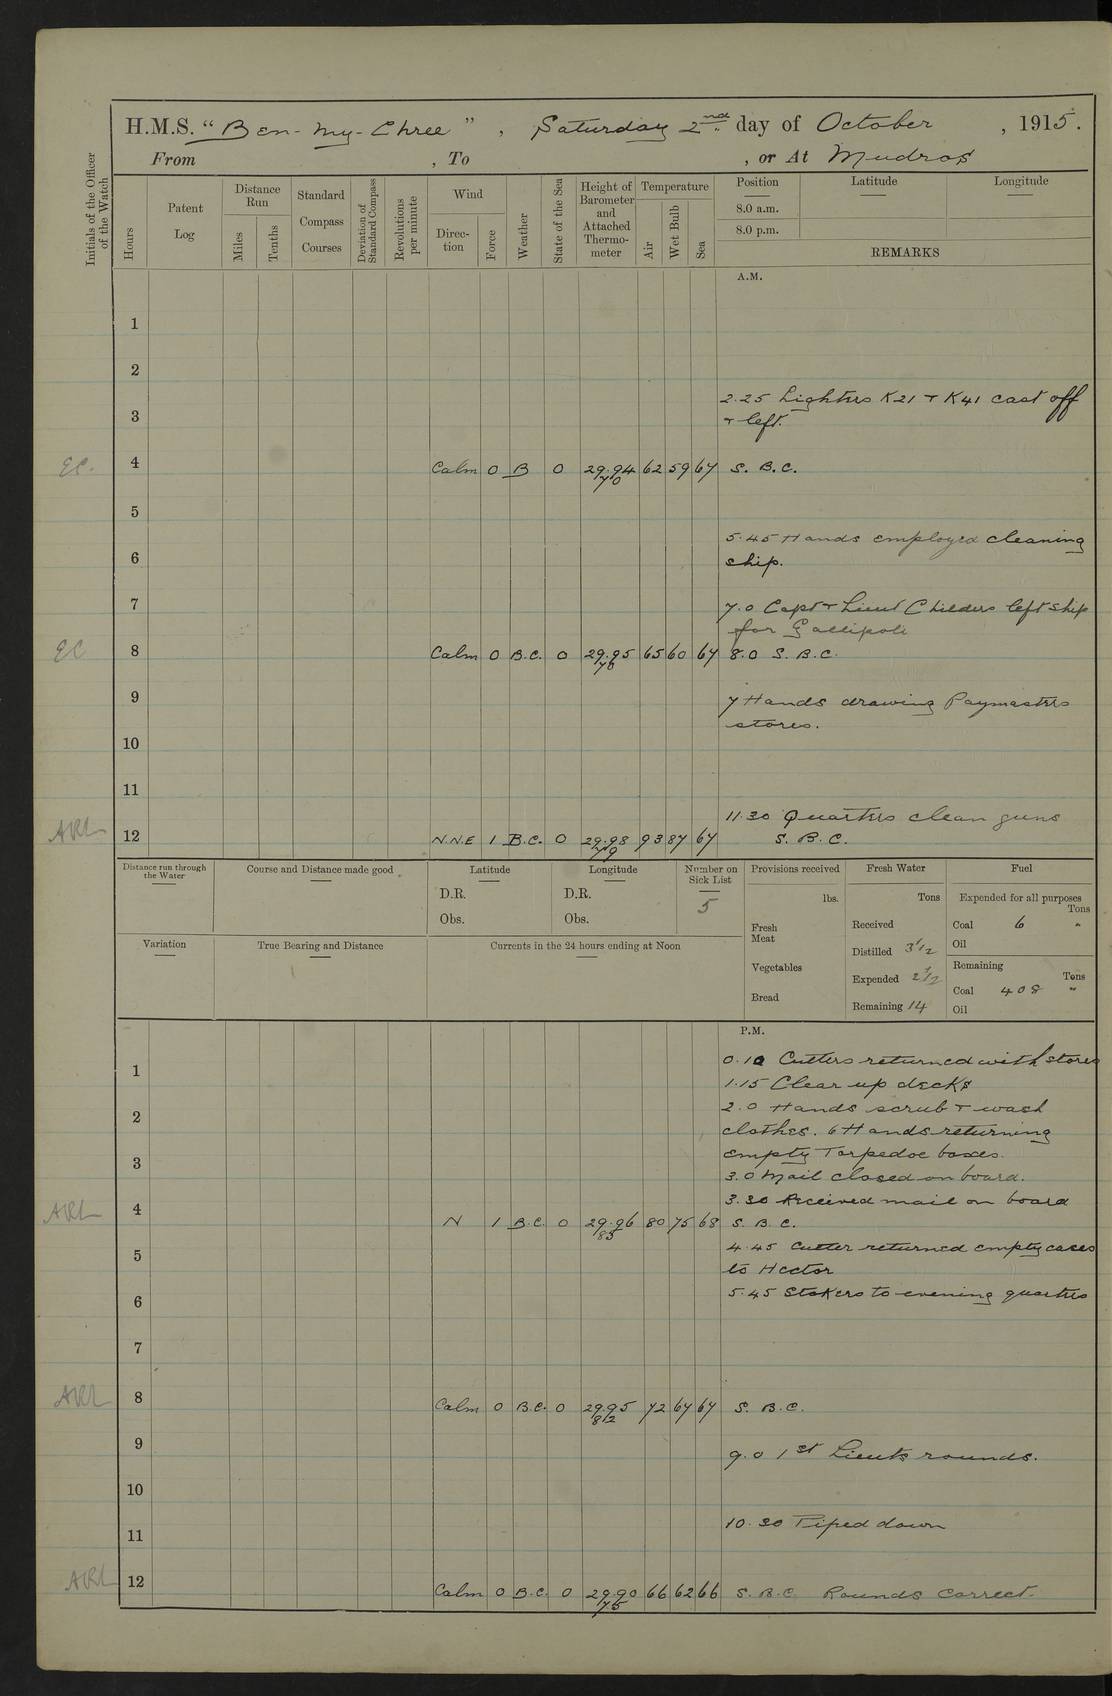 H.M.S. "Ben-my-Chree", Saturday 2nd day of October, 1915.
From , To , or At Mudros
Initials of the Officer of the Watch
Hours
Patent Log
Distance Run
Miles
Tenths
Standard Compass Courses
Deviation of Standard Compass
Revolutions per minute
Wind
Direction
Force
Weather
State of the Sea
Height of Barometer and Attached Thermometer
Temperature
Air
Wet Bulb
Sea
Position Latitude Longitude
8.0 a.m.
8.0 p.m.
REMARKS
A.M.
1
2
2.25 Lighters K21 + K41 cast off
3
+ left.
EC. 4 Calm 0 B 0 29.94 62 59 67 S. B. C.
70
5
5.45 Hands employed cleaning
6
ship.
7
7.0 Capt + Lieut Childers left ship
for Gallipoli
EC 8 Calm 0 B.C. 0 29.95 65 60 67 8.0 S. B. C.
70
9
7 Hands drawing Paymasters
stores.
10
11
11.30 Quarters clean guns
ARL 12 N.N.E 1 B.C. 0 29.98 93 87 67 S. B. C.
79
Distance run through the Water
Course and Distance made good
Latitude
D.R.
Obs.
Longitude
D.R.
Obs.
Number on Sick List
5
Provisions received
lbs.
Fresh Meat
Vegetables
Bread
Fresh Water
Tons
Received
Distilled 3 1/2
Expended 2 1/2
Remaining 14
Fuel
Expended for all purposes
Tons
Coal 6 "
Oil
Remaining
Tons
Coal 408 "
Oil
Variation
True Bearing and Distance
Currents in the 24 hours ending at Noon
P.M.
0.10 Cutters returned with stores
1
1.15 Clear up decks
2.0 Hands scrub + wash
2
clothes. 6 Hands returning
empty Torpedoe boxes.
3
3.0 Mail closed on board.
3.30 Received mail on board
ARL 4 N 1 B.C. 0 29.96 80 75 68 S. B. C.
83
4.45 Cutter returned empty cases
5
to Hector
5.45 Stokers to evening quarters
6
7
ARL 8 Calm 0 B.C. 0 29.95 72 67 67 S. B. C.
82
9
9.0 1st Lieuts rounds.
10
10.30 Piped down
11
ARL 12 Calm 0 B.C. 0 29.90 66 62 66 S. B. C. Rounds Correct.
75